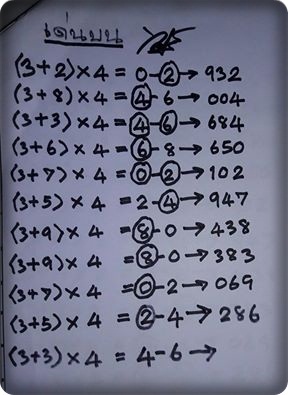 เด่นบน
(3+2)×4 = 0-2→932
(3+8)×4 = 4-6→004
(3+3)×4 = 4-6→684
(3+6)×4 = 6-8→650
(3+7)×4 = 0-2→102
(3+5)×4 = 2-4→947
(3+9)×4 = 8-0→438
(3+9)×4 = 8-0→383
(3+7)×4 = 0-2→069
(3+5)×4 = 2-4→286
(3+3)×4 = 4-6→